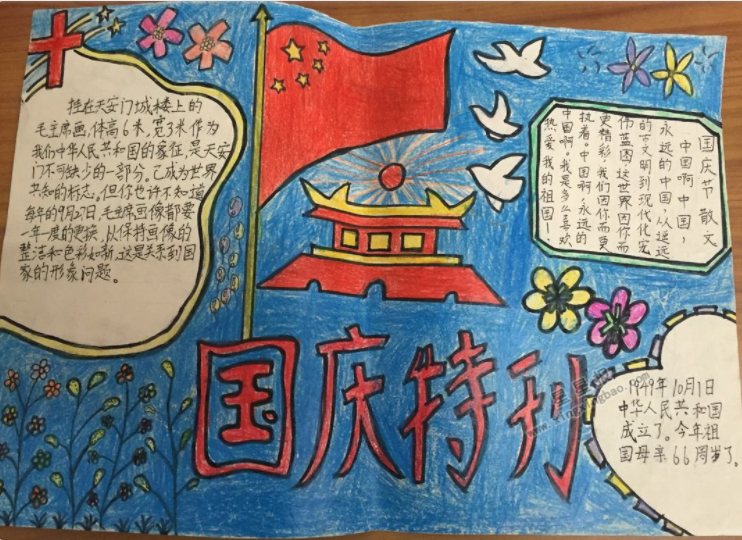 挂在天安门城楼上的
毛主席画,体高6米,宽了米作为
我们中华人民共和国的象征,是天安
门不可缺少的一部分。已成为世界
共知的标志。但你也许不知道
每年的9月27日,毛主席画像都要
一年度的更换,以保持画像的
整洁和色彩如新,这是关系到国
家的形象问题。
国庆节散文
中国啊中国,
永远的中国,从遥远
的古文明到现代化宏
伟蓝图,这世界因你而
更精彩,我们因你而更
执着。中国啊,永远的
中国啊。我是多么喜欢
热爱我的祖国!
国庆特刊
1949年10月1日
中华人民共和国
成立了。今年祖
国母亲66周岁了。